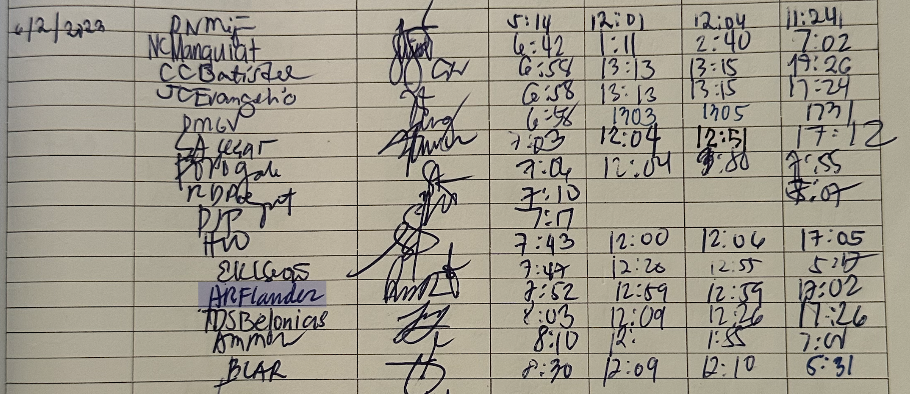 6/2/2023 DNMIF 5:14 12:01 12:04 11:24
NCManguiat 6:42 1:11 2:40 7:02
CCBatister 6:58 13:13 13:15 19:26
JCEvangelio 6:58 13:13 13:15 17:24
DMGV 6:58 1303 1305 1731
SACesar 7:03 12:04 12:51 17:12
7:04 12:04 7:55
7:10
DJP 7:17
HVO 7:43 12:00 12:06 17:05
7:47 12:20 12:55
ARFlander 7:52 12:59 12:59 17:02
MSBelonias 8:03 12:09 12:26 17:26
Ammor 8:10 12: 1:55
BLAR 8:30 12:09 12:10 5:31